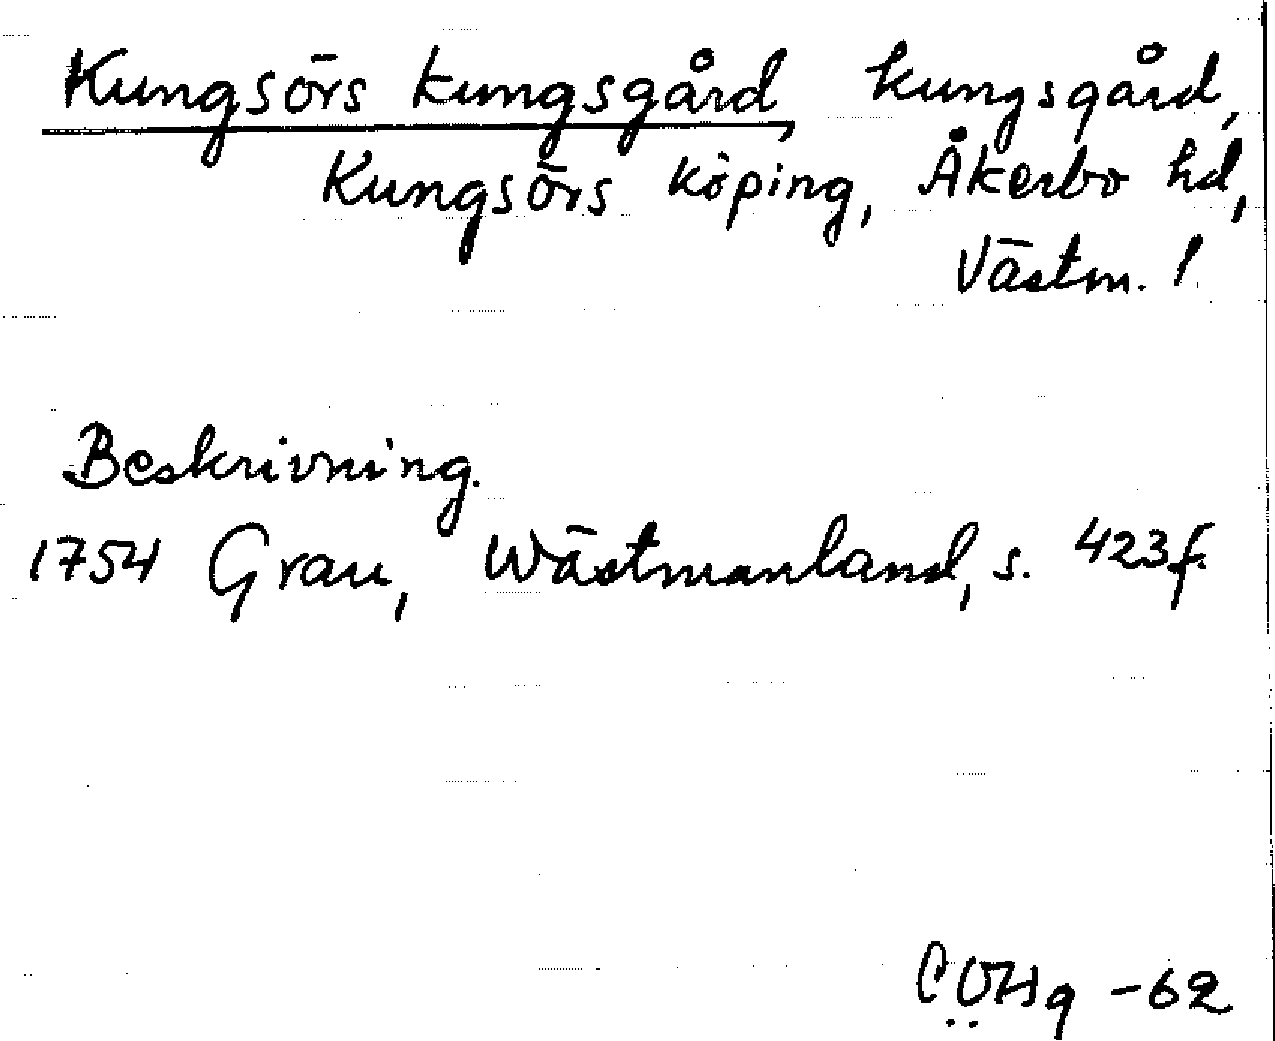 Kungsörs kungsgård, kungsgård,
Kungsörs köping, Åkerbo hd,
Västm. l.
Beskrivning.
1754 Grau, Wästmanland, s. 423f.
-62